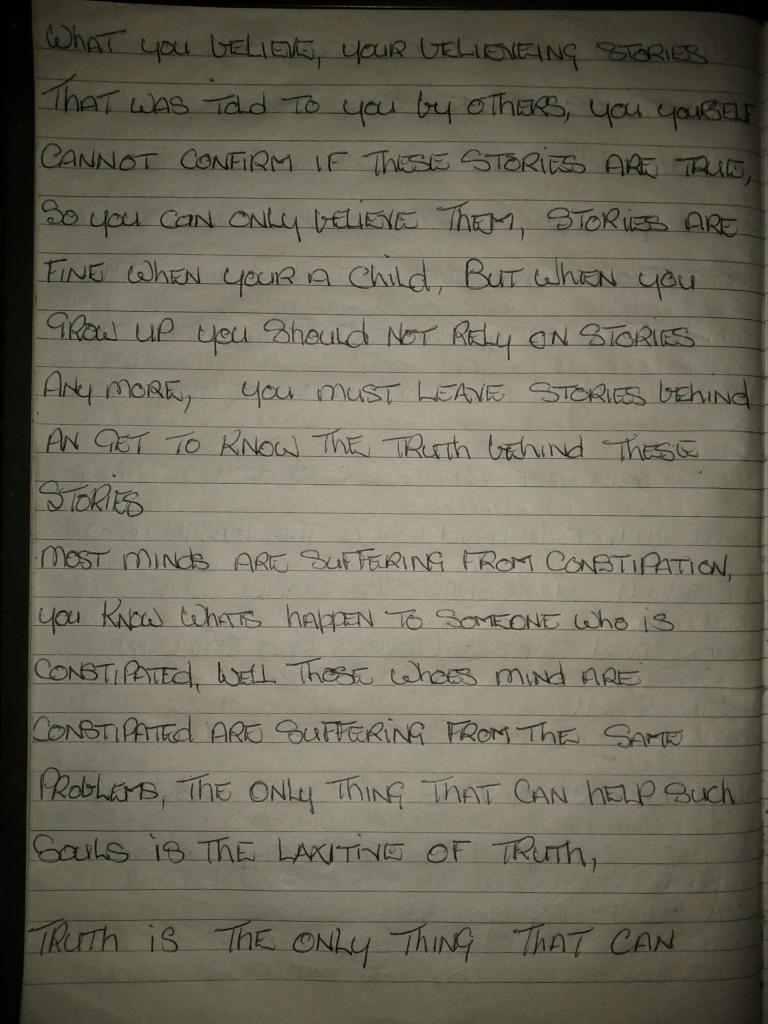 WHAT you bELIEVE, youR bELIEVEING STORIES
THAT WAS Told TO you by OTHERS, you youRSELF
CANNOT CONFIRM IF THESE STORIES ARE TRUE,
SO you CAN ONLY bELIEVE THEM, STORIES ARE
FINE WHEN youR A Child, BuT WHEN you
GROW UP you Should NOT RELy ON STORIES
ANy MORE, you MUST LEAVE STORIES bEHIND
AN GET TO KNOW THE TRuTh bEHIND THESE
STORIES
MOST MINdS ARE SuFFERING FROM CONSTIPATION,
you KNOW WHATS hAPPEN TO SOMEONE Who iS
CONSTIPATEd, WELL THOSE WhOES MINd ARE
CONSTIPATEd ARE SuFFERING FROM THE SAME
PRObLEMS, THE ONLy THING THAT CAN hELP Such
SOuLS iS THE LAXITIVE OF TRuTh,
TRuTh iS THE ONLy THING THAT CAN